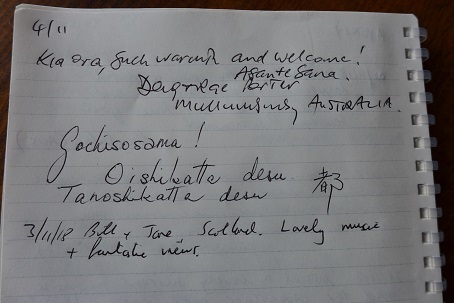 4/11
Kia ora, Such warmth and welcome!
Asante Sana.
Porter
Mullumbimby, AUSTRALIA.
Gochisosama!
Oishikatta desu
Tanoshikatta desu 都
3/11/18 Bill + Jane Scotland. Lovely music
+ fantastic views.